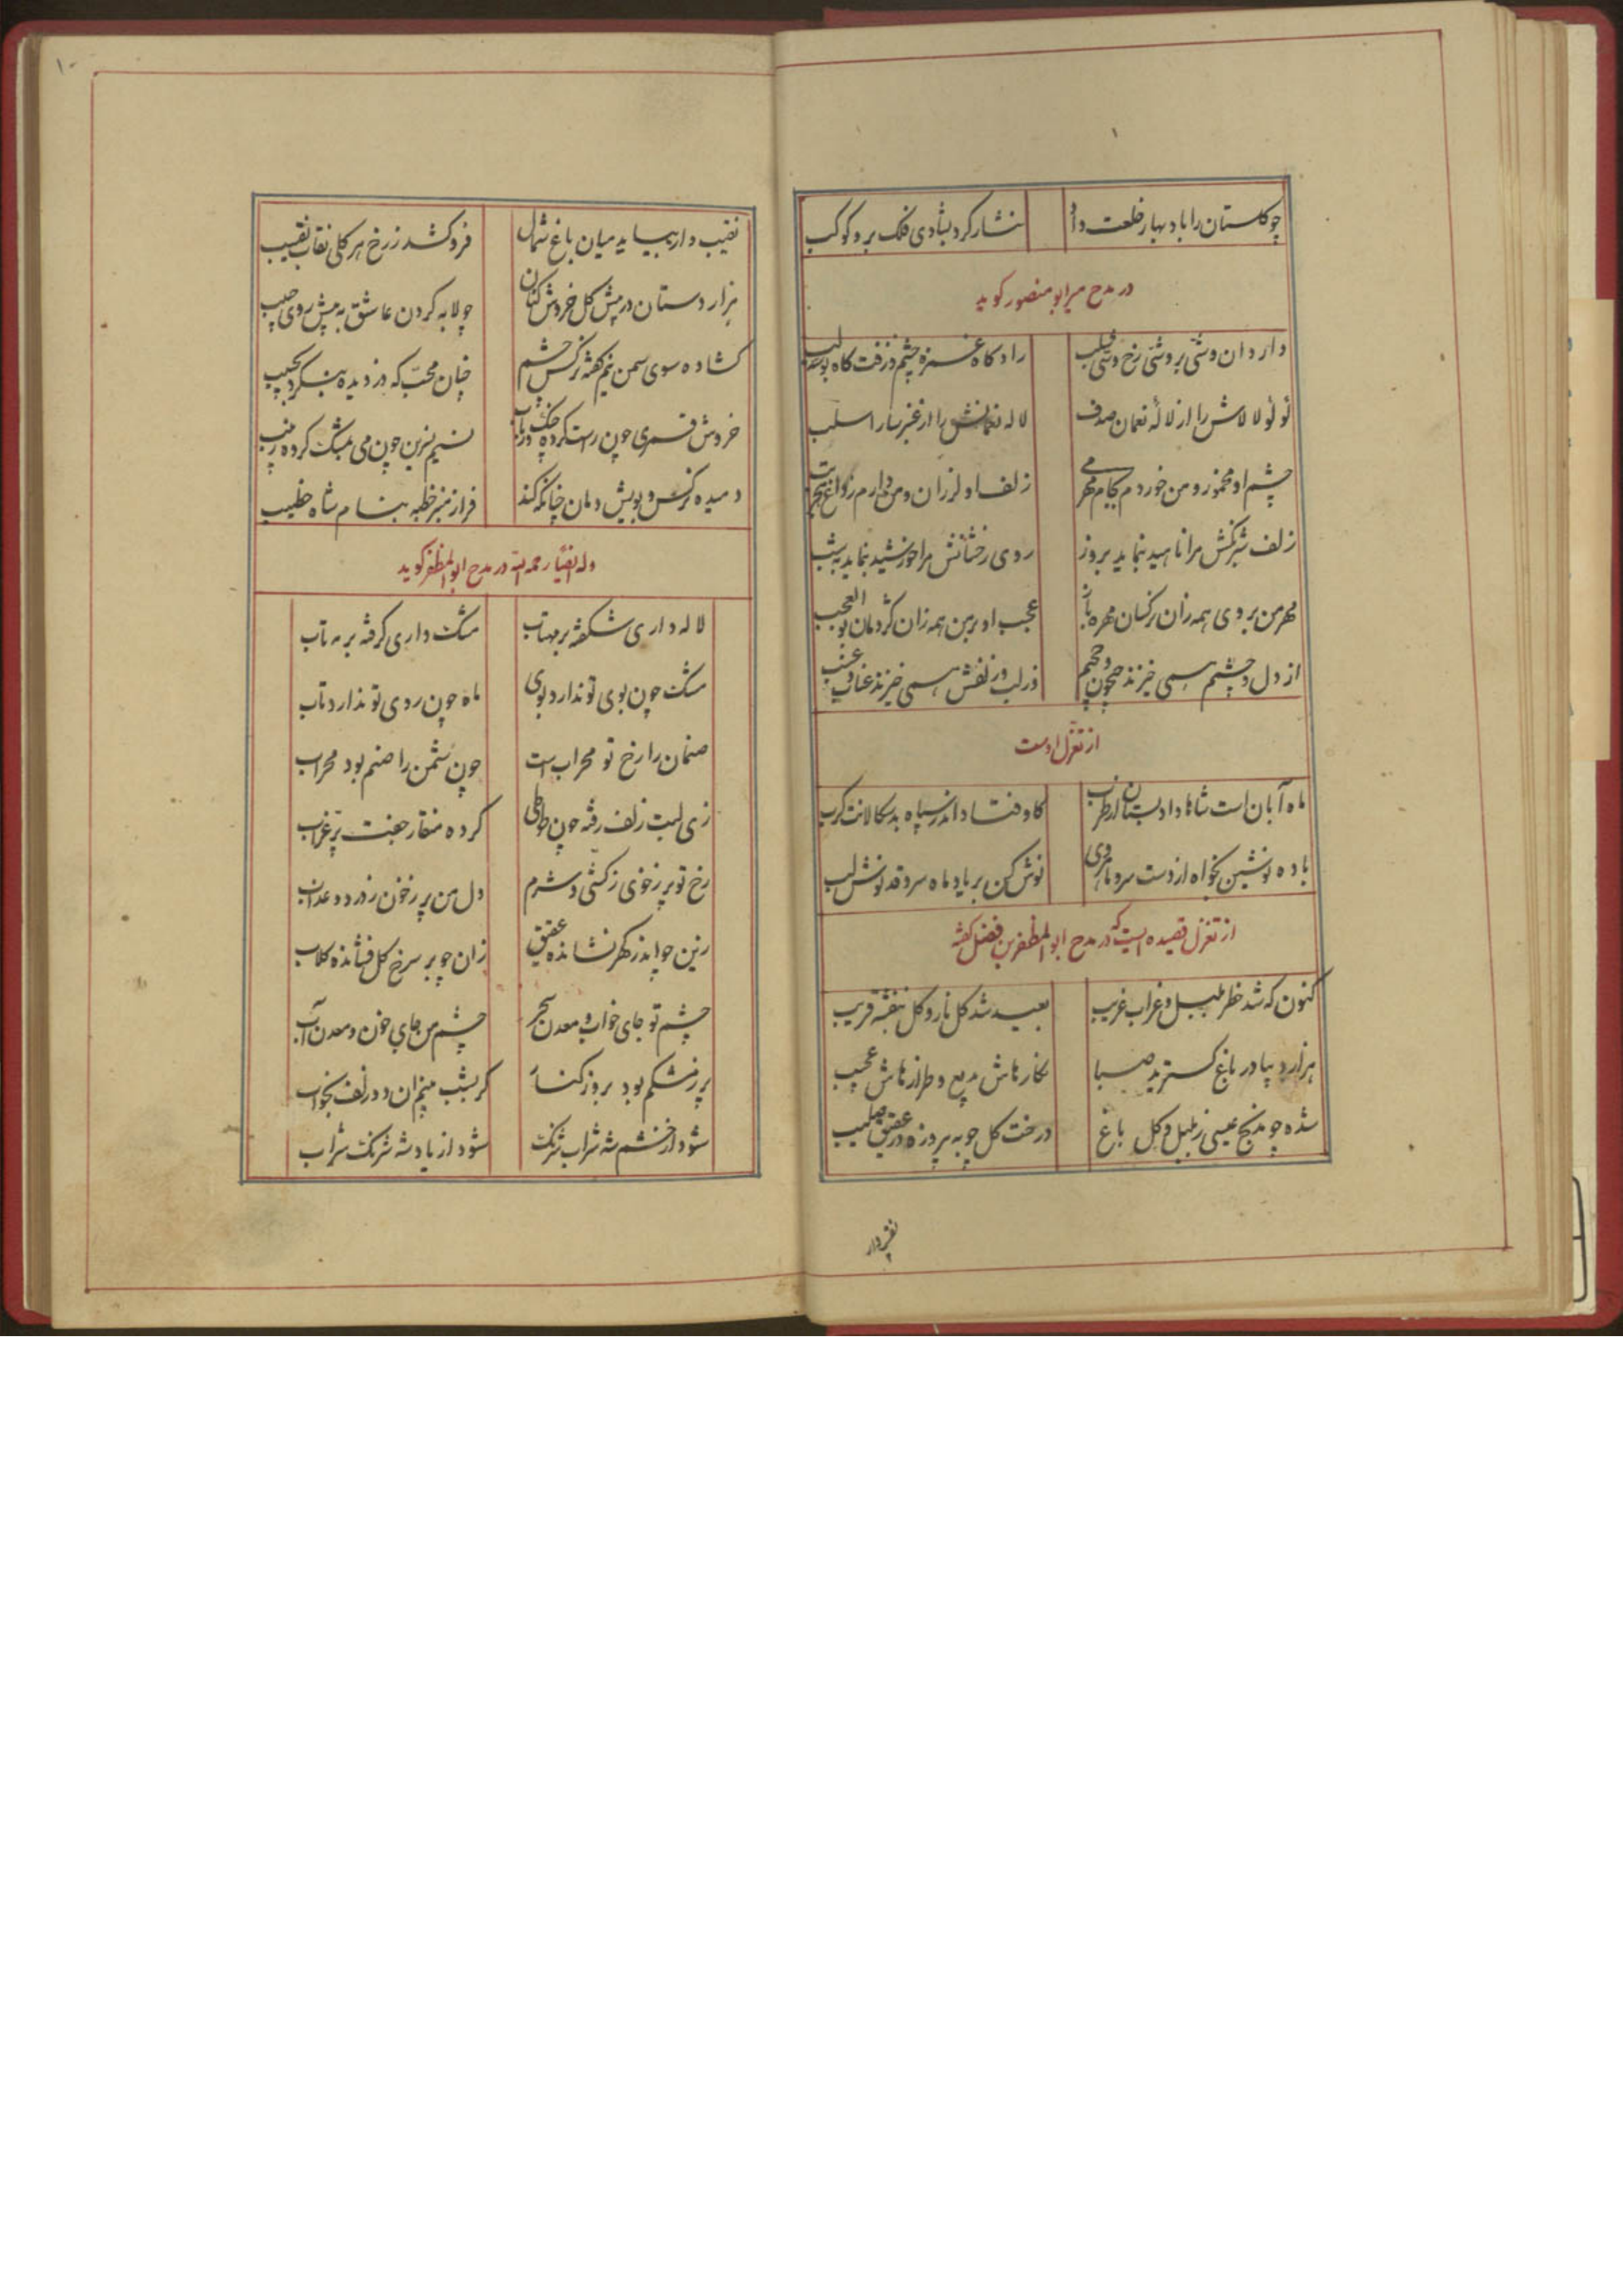 چو کلستان را باد بهار خلعت داد
نثار کرد بشادی فلک بر و کوکب
در مدح میر ابو منصور کوید
دارد آن وشی بر وشی رخ وشی قلب
راد کاه غمزه چشم و زفت کاه بوسه لب
لؤلؤ لالاش را از لالهٔ نعمان صدف
لاله نعمانش را از عنبر سارا سلب
چشم او مخمور و من خوردم بجام مهر می
زلف او لرزان و من دارم ز داغ هجر تب
زلف شبرنکش مرا ناهید بنماید بروز
روی رخشانش مرا خورشید بنماید بشب
مهر من بر وی همه زان نرکسان مهره باز
عجب او بر من همه زان کژدمان بوالعجب
از دل و چشمم همی خیزند جیحون و جحیم
در لب و زلفش همی خیزند عناب و عنب
از تغزل اوست
ماه آبان است شاها داد بستان از طرب
کاوفتاد اندر سپاه بدسکالانت کرب
باده نوشین بخواه از دست سرو ماهروی
نوش کن بر یاد ماه سرو قد نوش لب
از تغزل قصیده ایست که در مدح ابو المظفر بن فضل کفته
کنون که شد خطر بلبل و غراب غریب
بعید شد کل نار و کل بنفشه قریب
هزار دیبا در باغ کسترید صبا
نکارهاش بدیع و طرازهاش عجیب
شده چو مذبح عیسی ز بلبل و کل باغ
درخت کل چو به پیروزه در عقیق صلیب
نقیب وار
۱۰
نقیب وار بیاید میان باغ شمال
فروکشد ز رخ هر کلی نقاب نقیب
هزار دستان در پیش کل خروش کنان
چو لابه کردن عاشق به پیش روی حبیب
کشاده سوی سمن نیم کفته نرکس چشم
چنان محب که دزدیده بنکرد بحبیب
خروش قمری چون راست کرده چنک و رباب
نسیم نسرین چون می بمشک کرده ربیب
دمیده نرکس و بویش دمان چنانکه کند
فراز منبر خطبه بنام شاه خطیب
وله ایضا رحمه الله در مدح ابوالمظفر کوید
لاله داری شکفته بر مهتاب
مشک داری کرفته بر مه تاب
مشک چون بوی تو ندارد بوی
ماه چون روی تو ندارد تاب
صنمان را رخ تو محراب است
چون شمن را صنم بود محراب
زی لبت زلف رفته چون طوطی
کرده منقار جفت پر غراب
رخ تو پر ز خوی ز کشی و شرم
دل من پر ز خون ز درد و عذاب
زین چو اندر کهر نشانده عقیق
زان چو بر سرخ کل فشانده کلاب
چشم تو جای خواب و معدن سحر
چشم من جای خون و معدن آب
پر ز مشکم بود بروز کنار
کر بشب بینم آن دو زلف بخواب
شود از خشم شه شراب شرنک
شود از یاد شه شرنک شراب